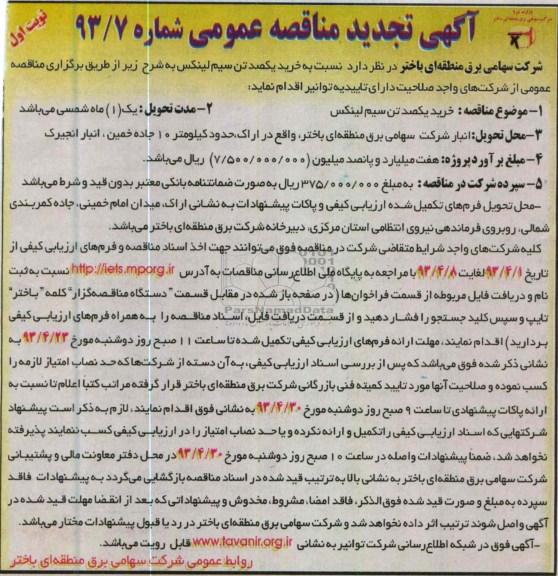 آگهی تجدید مناقصه عمومی شماره ۹۳/۷
نوبت اول
شرکت سهامی برق منطقه‌ای باختر در نظر دارد نسبت به خرید یکصد تن سیم لینکس به شرح زیر از طریق برگزاری مناقصه
عمومی از شرکت‌های واجد صلاحیت دارای تاییدیه توانیر اقدام نماید:
۱- موضوع مناقصه : خرید یکصد تن سیم لینکس ۲- مدت تحویل : یک (۱) ماه شمسی می‌باشد
۳- محل تحویل: انبار شرکت سهامی برق منطقه‌ای باختر، واقع در اراک، حدود کیلومتر ۱۰ جاده خمین ، انبار انجیرک
۴- مبلغ برآورد پروژه: هفت میلیارد و پانصد میلیون (۷/۵۰۰/۰۰۰/۰۰۰) ریال می‌باشد.
۵- سپرده شرکت در مناقصه : به مبلغ ۳۷۵/۰۰۰/۰۰۰ ریال به صورت ضمانتنامه بانکی معتبر بدون قید و شرط می‌باشد
-محل تحویل فرم‌های تکمیل شده ارزیابی کیفی و پاکات پیشنهادات به نشانی اراک، میدان امام خمینی، جاده کمربندی
شمالی، روبروی فرماندهی نیروی انتظامی استان مرکزی، دبیرخانه شرکت برق منطقه‌ای باختر می‌باشد.
کلیه شرکت‌های واجد شرایط متقاضی شرکت در مناقصه فوق می‌توانند جهت اخذ اسناد مناقصه و فرم‌های ارزیابی کیفی از
تاریخ ۹۳/۴/۱ لغایت ۹۳/۴/۸ با مراجعه به پایگاه ملی اطلاع رسانی مناقصات به آدرس http://iets.mporg.ir نسبت به ثبت
نام و دریافت فایل مربوطه از قسمت فراخوان‌ها ( در صفحه باز شده در مقابل قسمت " دستگاه مناقصه‌گزار" کلمه "باختر"
تایپ و سپس کلید جستجو را فشار دهید و از قسمت دریافت فایل، اسناد مناقصه را به همراه فرم‌های ارزیابی کیفی
بردارید) اقدام نمایند، مهلت ارائه فرم‌های ارزیابی کیفی تکمیل شده تا ساعت ۱۱ صبح روز دوشنبه مورخ ۹۳/۴/۲۳ به
نشانی ذکر شده فوق می‌باشد که پس از بررسی اسناد ارزیابی کیفی، به آن دسته از شرکت‌ها که حد نصاب امتیاز لازمه را
کسب نموده و صلاحیت آنها مورد تایید کمیته فنی بازرگانی شرکت برق منطقه‌ای باختر قرار گرفته مراتب کتباً اعلام تا نسبت به
ارائه پاکات پیشنهادی تا ساعت ۹ صبح روز دوشنبه مورخ ۹۳/۴/۳۰ به نشانی فوق اقدام نمایند، لازم به ذکر است پیشنهاد
شرکتهایی که اسناد ارزیابی کیفی را تکمیل و ارائه نکرده و یا حد نصاب امتیاز را در ارزیابی کیفی کسب ننمایند پذیرفته
نخواهد شد، ضمناً پیشنهادات واصله در ساعت ۱۰ صبح روز دوشنبه مورخ ۹۳/۴/۳۰ در محل دفتر معاونت مالی و پشتیبانی
شرکت سهامی برق منطقه‌ای باختر به نشانی بالا به ترتیب قید شده در اسناد مناقصه بازگشایی می‌گردد به پیشنهادات فاقد
سپرده به مبلغ و صورت قید شده فوق‌الذکر، فاقد امضا، مشروط، مخدوش و پیشنهاداتی که بعد از انقضا مهلت قید شده در
آگهی واصل شوند ترتیب اثر داده نخواهد شد و شرکت سهامی برق منطقه‌ای باختر در رد یا قبول پیشنهادات مختار می‌باشد.
-آگهی فوق در شبکه اطلاع رسانی شرکت توانیر به نشانی www.tavanir.org.ir قابل رویت می‌باشد.
روابط عمومی شرکت سهامی برق منطقه‌ای باختر
ParsNamadData